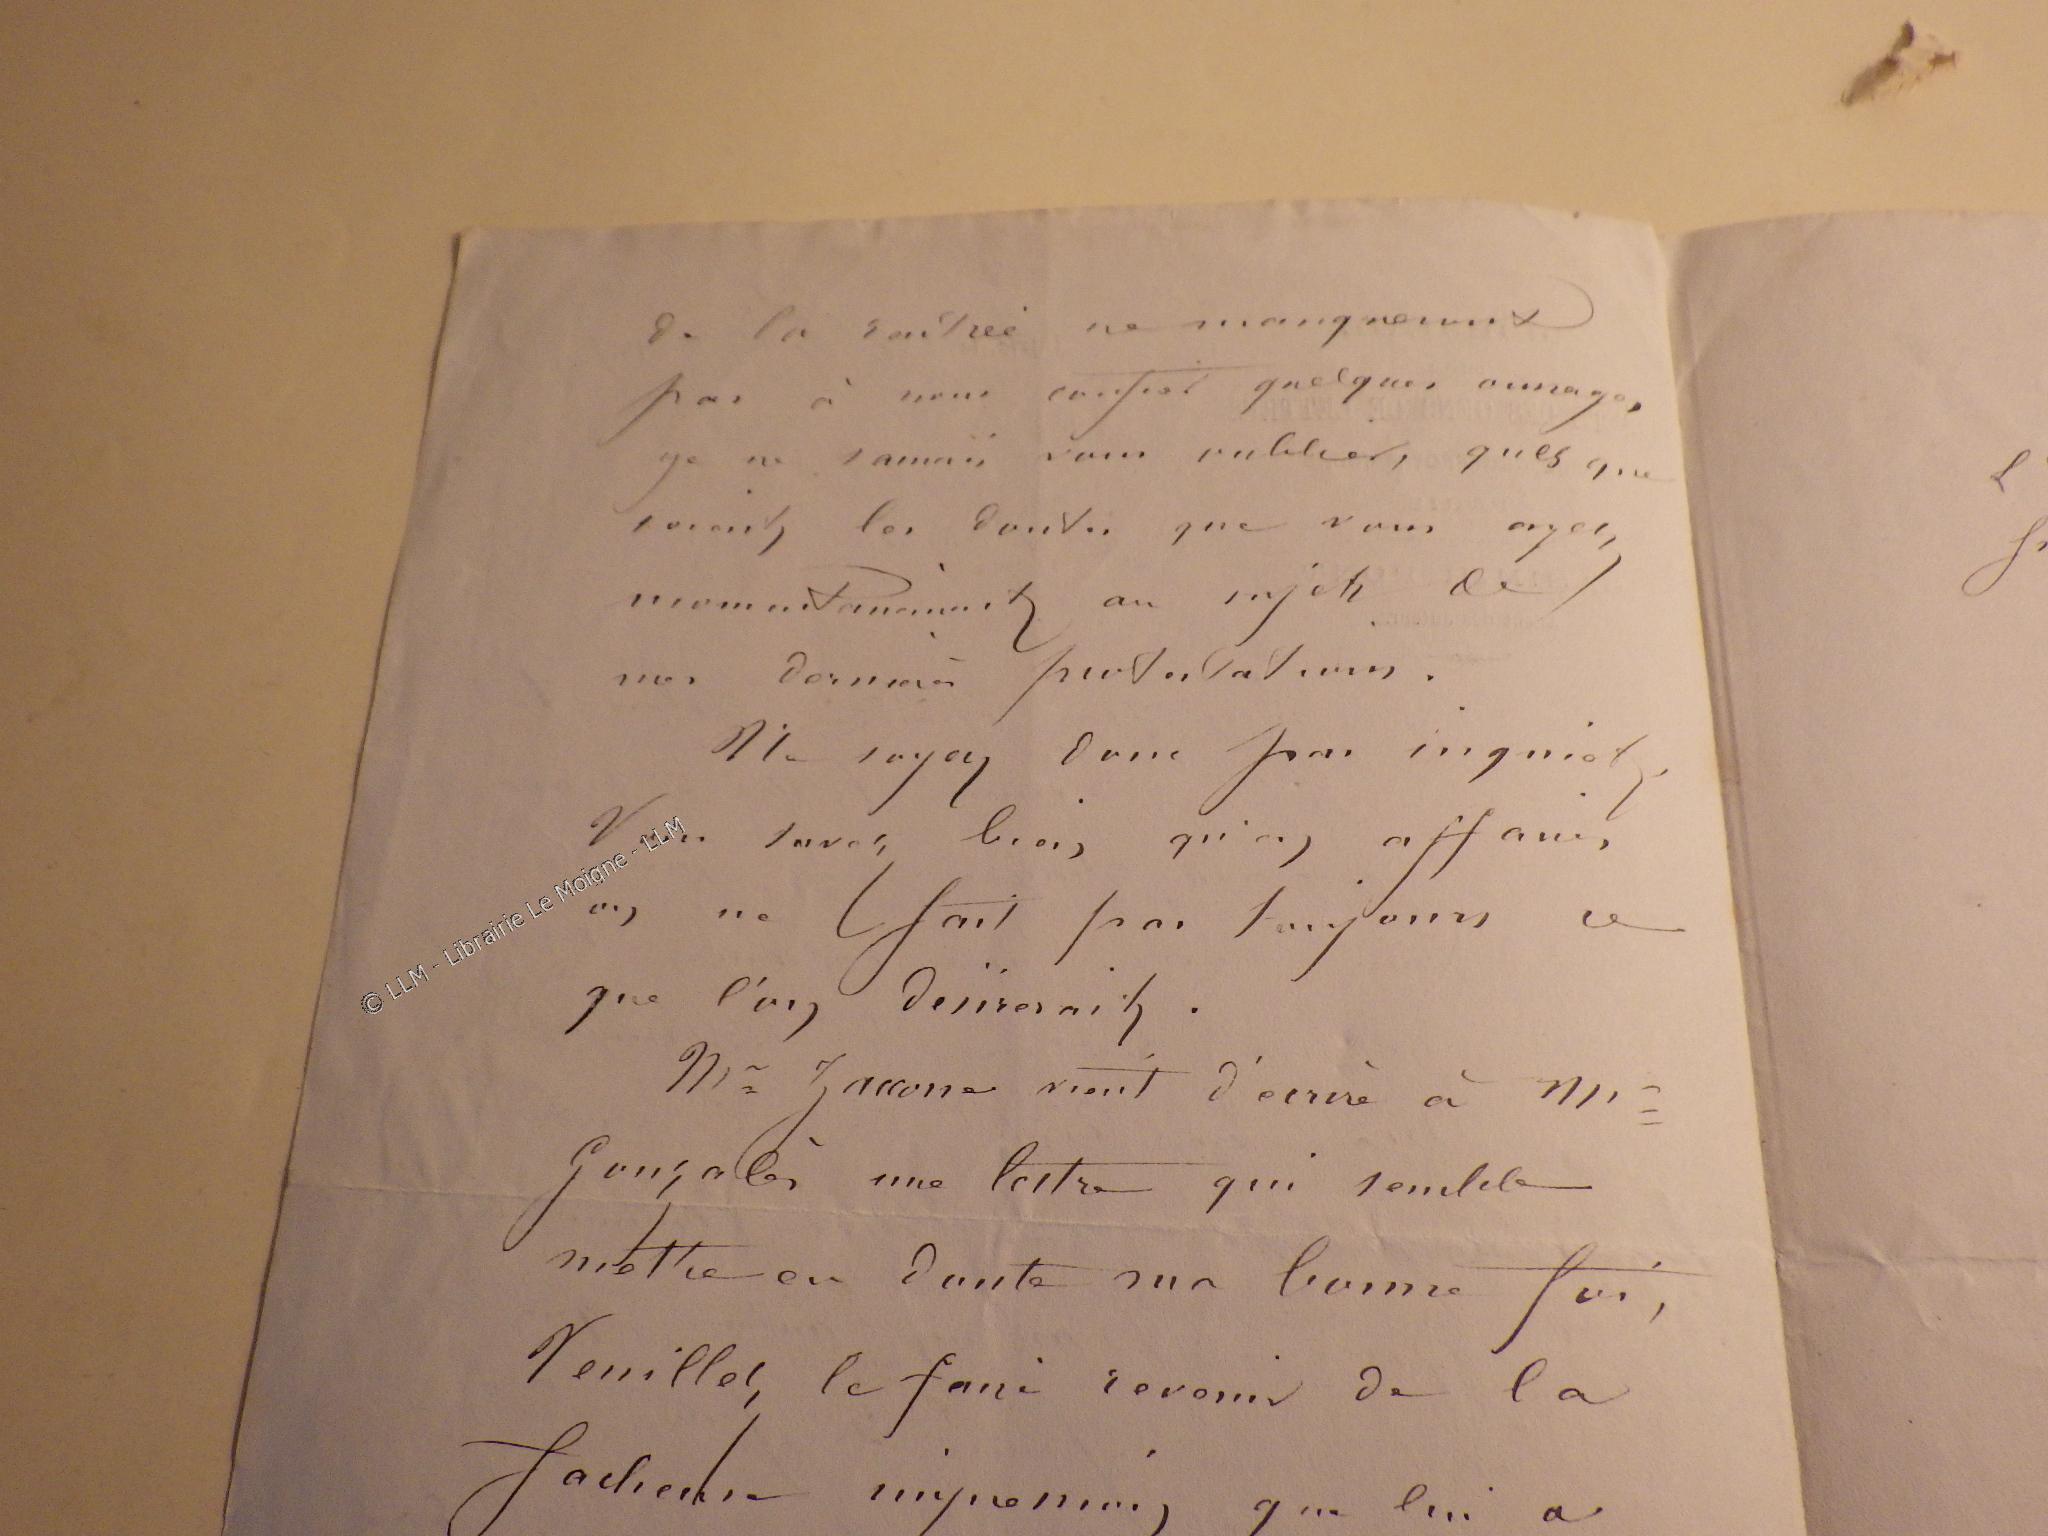 de la rentrée ne manqueront
pas à nous confier quelques ouvrages,
je ne saurais vous oublier, quels que
soient les doutes que vous ayez
momentanément au sujet de
mes dernières protestations.
Ne soyez donc pas inquiet,
Vous savez bien qu'en affaires
on ne fait pas toujours ce
que l'on désirerait.
Mr Zaccone vient d'écrire à Mr
Gonzalès une lettre qui semble
mettre en doute ma bonne foi,
Veuillez le faire revenir de la
facheuse impression que lui a
© LLM - Librairie Le Moigne - LLM